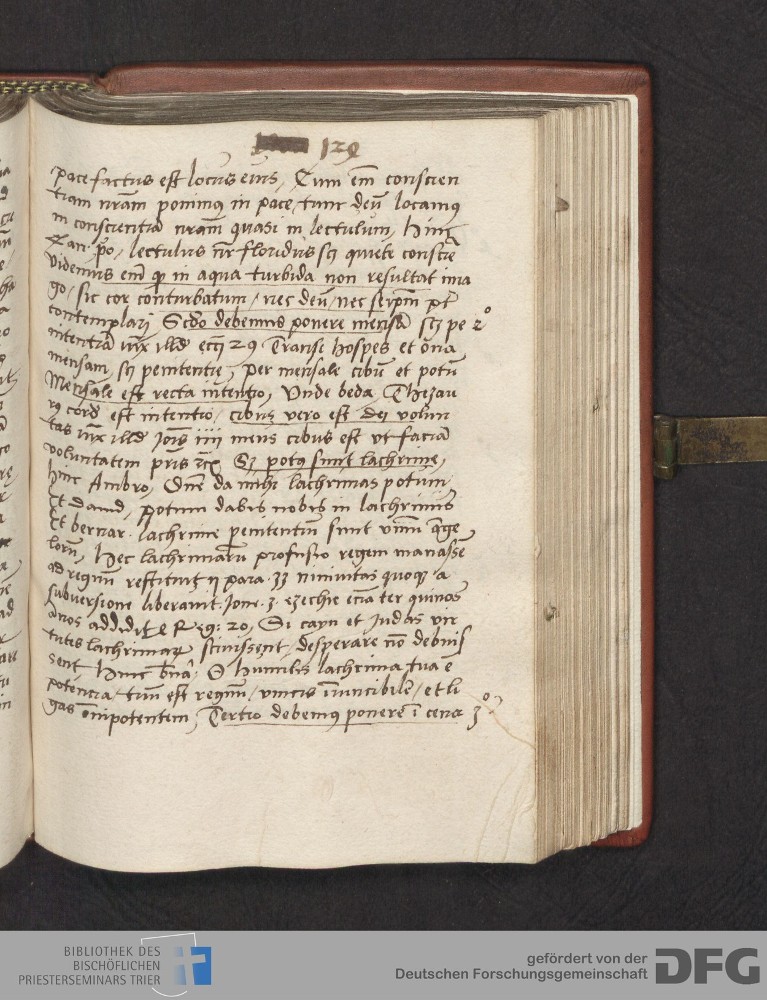 129
pace factus est locus eius, Cum em̄ conscien
tiam nr̄am ponimus in pace, tunc deū locamus
in conscientia nr̄am quasi in lectulum, Hinc
Can. pō, lectulus nr̄ floridus sꝫ quiete conscie
Videmus em̄ qͥ in aqua turbida non resultat ima
go, sic cor conturbatum, nec deū, nec seipm̄ pt̄
contemplarj Scd̄o debemus ponere mensā sꝫ pe 2°
intentiā iuxͣ illd̄ eccj 29 Transi hospes et orna
mensam, sꝫ penitentie, per mensale cibū et potū
Mensale est recta intentio, Unde beda Thezau
rꝰ cord̄ est intentio, cibus vero est dej volun
tas iuxͣ illd̄ Joīs iiii meus cibus est ut faciā
voluntatem pris rc̄ Sꝫ potꝰ sunt lachrime,
hinc Ambro, Dn̄e da mihi lachrimas potum,
Et dauid, potum dabis nobis in lachrimis
Et bernar. lachrime penitentiū sunt vinū ange
lorū, Hec lachrimarū profusio regem manasse
ad regnū restituit ij para. 33 niniuitas quoqꝫ a
subuersione liberauit Jone. 3. ezechie etiā ter quinos
anos addidit 4 Reg: 20, Si cayn et Judas vir
tutes lachrimarꝫ sciuissent, desperare nō debuis
sent Hinc O humilis lachrima tua ē
potencia, tuū est regnū, vincis īuincibilē, et li
gas om̄ipotentem, Tertio debemꝰ ponere ī cena 3°
BIBLIOTHEK DES
BISCHÖFLICHEN
PRIESTERSEMINARS TRIER
gefördert von der
Deutschen Forschungsgemeinschaft
DFG